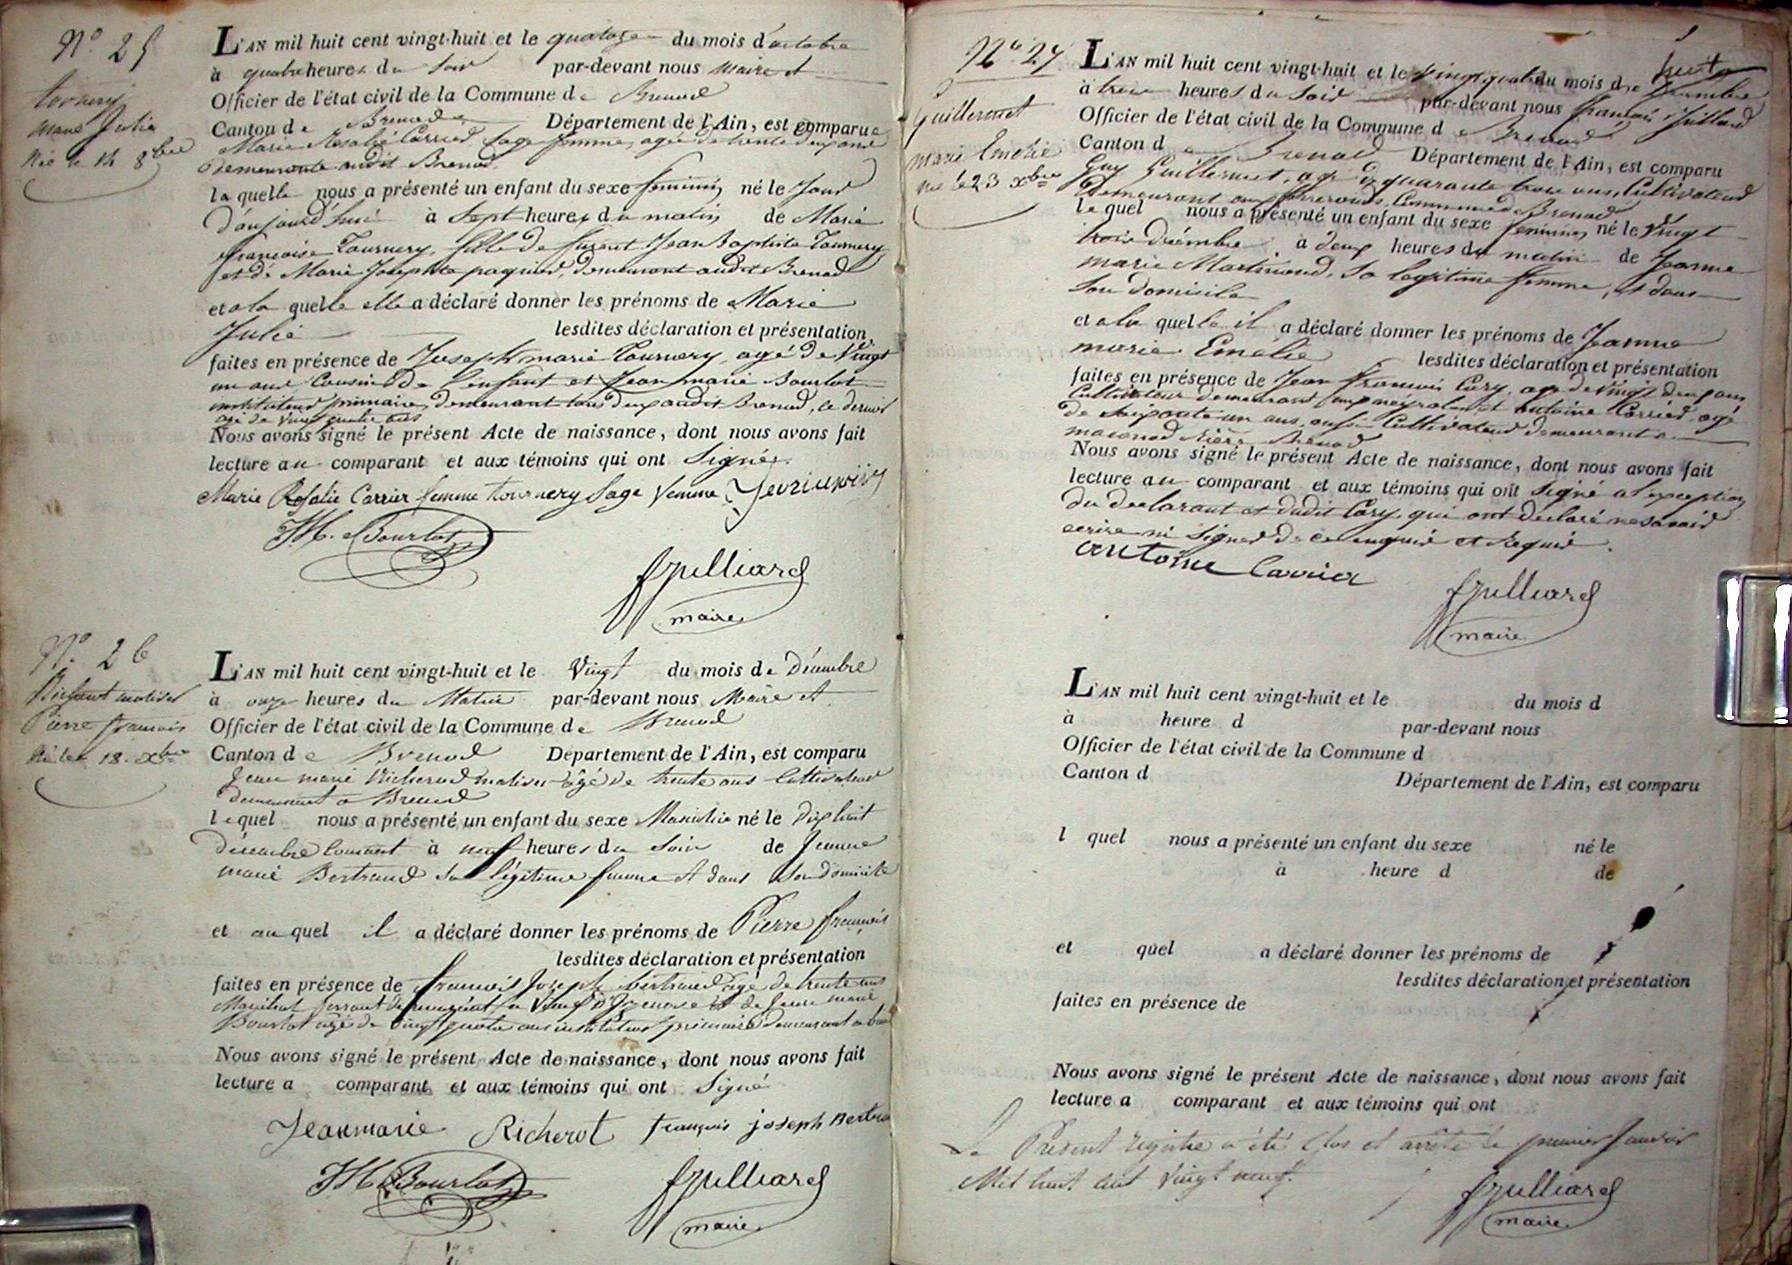 N° 25
tournery
marie Julie
née le 14 8bre
L'AN mil huit cent vingt-huit et le quatorze du mois d'octobre
à quatre heures du soir par-devant nous maire et
Officier de l'état civil de la Commune de Brenod
Canton de Brenod Département de l'Ain, est comparue
Marie Rosalie Carrier sage femme, agée de trente deux ans
demeurante audit Brenod
laquelle nous a présenté un enfant du sexe feminin né le Jour
d'aujourd'hui à Sept heures du matin de Marie
françoise Tournery, fille de Jean Baptiste Tournery
et de Marie Josephte demeurant audit Brenod
et a la quelle elle a déclaré donner les prénoms de Marie
Julie lesdites déclaration et présentation
faites en présence de Joseph marie Tournery, agé de Vingt
un ans Cousin de l'enfant et Jean marie Bourlot
instituteur primaire, demeurant tous deux audit Brenod, ce dernier
agé de vingt quatre ans
Nous avons signé le présent Acte de naissance, dont nous avons fait
lecture au comparant et aux témoins qui ont Signé.
Marie Rosalie Carrier femme tournery Sage femme
JM. Bourlot
fjulliard
maire
N° 26
Pierre francois
Né le 18. Xbre
L'AN mil huit cent vingt-huit et le Vingt du mois de Décembre
à onze heures du Matin par-devant nous Maire et
Officier de l'état civil de la Commune de Brenod
Canton de Brenod Département de l'Ain, est comparu
Jean marie Richerod agé de trente ans Cultivateur
demeurant a Brenod
lequel nous a présenté un enfant du sexe Masculin né le dixhuit
décembre Courant à neuf heures du Soir de Jeanne
marie Bertrand Sa légitime femme et dans son domicile
et au quel il a déclaré donner les prénoms de Pierre françois
lesdites déclaration et présentation
faites en présence de francois Joseph bertrand agé de trente ans
Maréchal ferrant demeurant a et de Jean marie
Bourlot agé de vingt quatre ans instituteur primaire demeurant a
Nous avons signé le présent Acte de naissance, dont nous avons fait
lecture a comparant et aux témoins qui ont Signé
Jeanmarie Richerot françois joseph Bertra
JM Bourlot
fjulliard
maire
N° 27
Guillermet
marie Emelie
née le 23 xbre
L'AN mil huit cent vingt-huit et le Vingt quatre du mois de décembre
à trois heures du Soir par-devant nous françois Julliard
Officier de l'état civil de la Commune de Brenod
Canton de Brenod Département de l'Ain, est comparu
Guy Guillermet, agé de quarante trois ans, Cultivateur
demeurant aux Commune de Brenod
le quel nous a présenté un enfant du sexe feminin né le Vingt
trois décembre à deux heures du matin de Jeanne
marie Martinand, Sa légitime femme, et dans
Son domicile
et a la quelle il a déclaré donner les prénoms de Jeanne
marie Emelie lesdites déclaration et présentation
faites en présence de Jean francois Cary, agé de Vingt deux ans
Cultivateur demeurant et antoine Carrier agé
de Soixante un ans, aussi Cultivateur demeurant a
maconod Brenod
Nous avons signé le présent Acte de naissance, dont nous avons fait
lecture au comparant et aux témoins qui ont Signé a l'exception
du declarant et dudit Cary qui ont declaré ne savoir
ecrire ni Signer de ce enquis et Requis.
antoine Carrier
fjulliard
maire
L'AN mil huit cent vingt-huit et le du mois d
à heure d par-devant nous
Officier de l'état civil de la Commune d
Canton d Département de l'Ain, est comparu
l quel nous a présenté un enfant du sexe né le
à heure d de
et quel a déclaré donner les prénoms de
lesdites déclaration et présentation
faites en présence de
Nous avons signé le présent Acte de naissance, dont nous avons fait
lecture a comparant et aux témoins qui ont
Le Présent registre a été Clos et arrêté le premier Janvier
Mil huit cent Vingt neuf.
fjulliard
maire